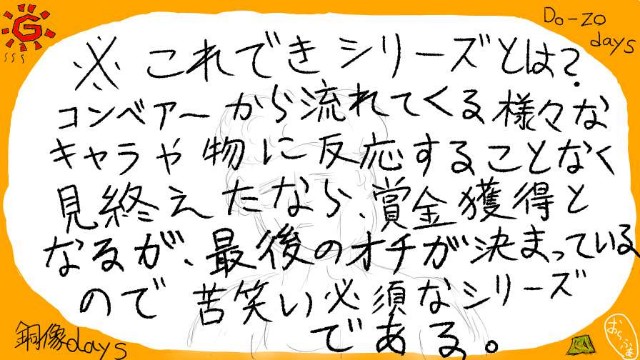 G
Do-zo
days
※これできシリーズとは?
コンベアーから流れてくる様々な
キャラや物に反応することなく
見終えたなら、賞金獲得と
なるが、最後のオチが決まっている
ので苦笑い必須なシリーズ
である。
銅像days